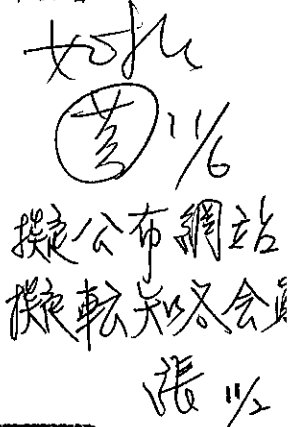 如拟
黄 11/6
擬公布網站
擬転知各会員
張 11/2